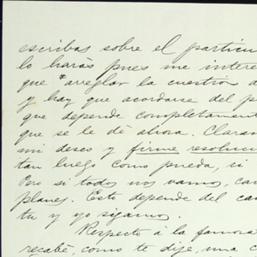 escribas sobre el particu
lo harás pues me intere
que arreglar la cuestión d
y hay que acordarse del p
que depende completament
que se le dé ahora. Claram
mi deseo y firme resoluci
tan luego como pueda, si
Pero si todos nos vamos, cam
planes. Esto depende del ca
tu y yo sigamos.
Respecto á la famosa
recabé, como te dije, una c